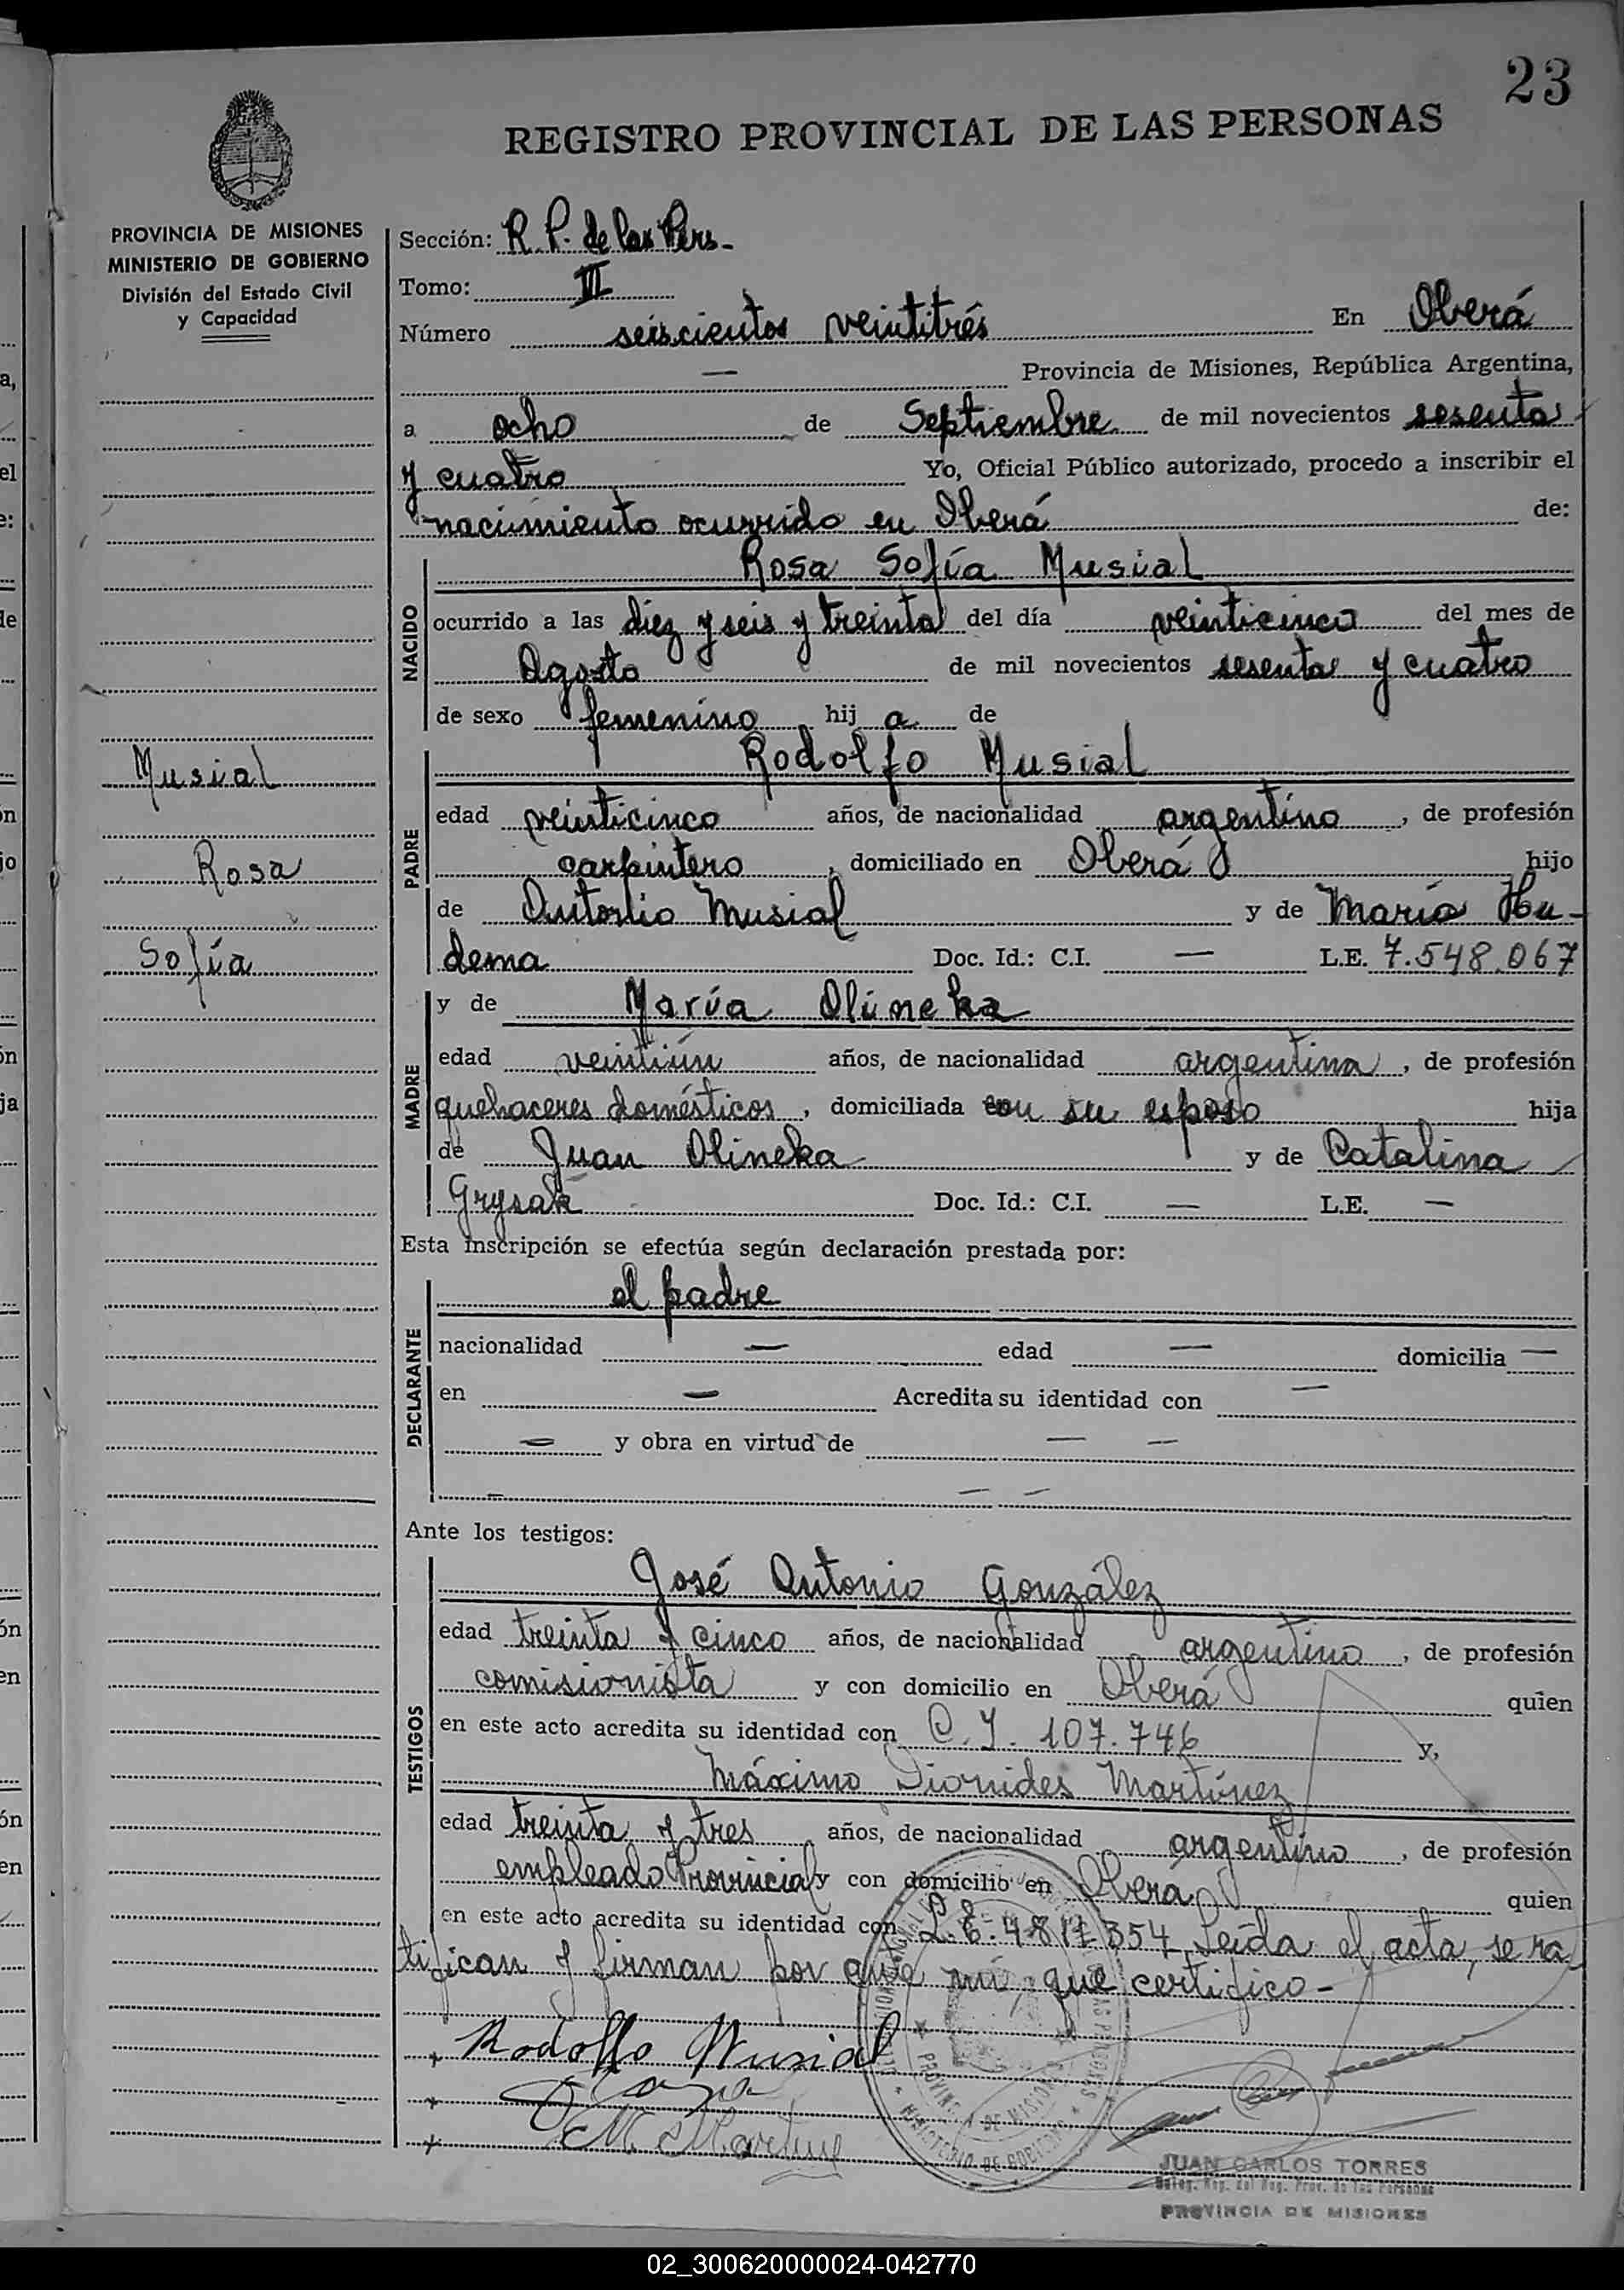 23
REGISTRO PROVINCIAL DE LAS PERSONAS
PROVINCIA DE MISIONES
MINISTERIO DE GOBIERNO
División del Estado Civil
y Capacidad
Sección: R. P. de las Pers.-
Tomo: III
Número seiscientos veintitrés En Oberá
— Provincia de Misiones, República Argentina,
a ocho de Septiembre de mil novecientos sesenta
y cuatro Yo, Oficial Público autorizado, procedo a inscribir el
nacimiento ocurrido en Oberá de:
NACIDO
Rosa Sofía Musial
ocurrido a las diez y seis y treinta del día veinticinco del mes de
Agosto de mil novecientos sesenta y cuatro
de sexo femenino hij a de
Musial
Rosa
Sofía
PADRE
Rodolfo Musial
edad veinticinco años, de nacionalidad argentino, de profesión
carpintero, domiciliado en Oberá hijo
de Antonio Musial y de María Hu-
dema Doc. Id.: C.I. — L.E. 7.548.067
MADRE
y de María Olineka
edad veintiún años, de nacionalidad argentina, de profesión
quehaceres domésticos, domiciliada con su esposo hija
de Juan Olineka y de Catalina
Grysak Doc. Id.: C.I. — L.E. —
Esta inscripción se efectúa según declaración prestada por:
DECLARANTE
el padre
nacionalidad — edad — domicilia —
en — Acredita su identidad con —
— y obra en virtud de — —
— — —
Ante los testigos:
TESTIGOS
José Antonio González
edad treinta y cinco años, de nacionalidad argentino, de profesión
comisionista y con domicilio en Oberá quien
en este acto acredita su identidad con C. I. 107.746 y,
Máximo Dionides Martínez
edad treinta y tres años, de nacionalidad argentino, de profesión
empleado Provincial y con domicilio en Oberá quien
en este acto acredita su identidad con L.E. Leída el acta, se ra
tifican y firman por ante mí que certifico-
Rodolfo Musial
PROVINCIA DE MISIONES
MINISTERIO DE GOBIERNO
JUAN CARLOS TORRES
PROVINCIA DE MISIONES
02_300620000024-042770